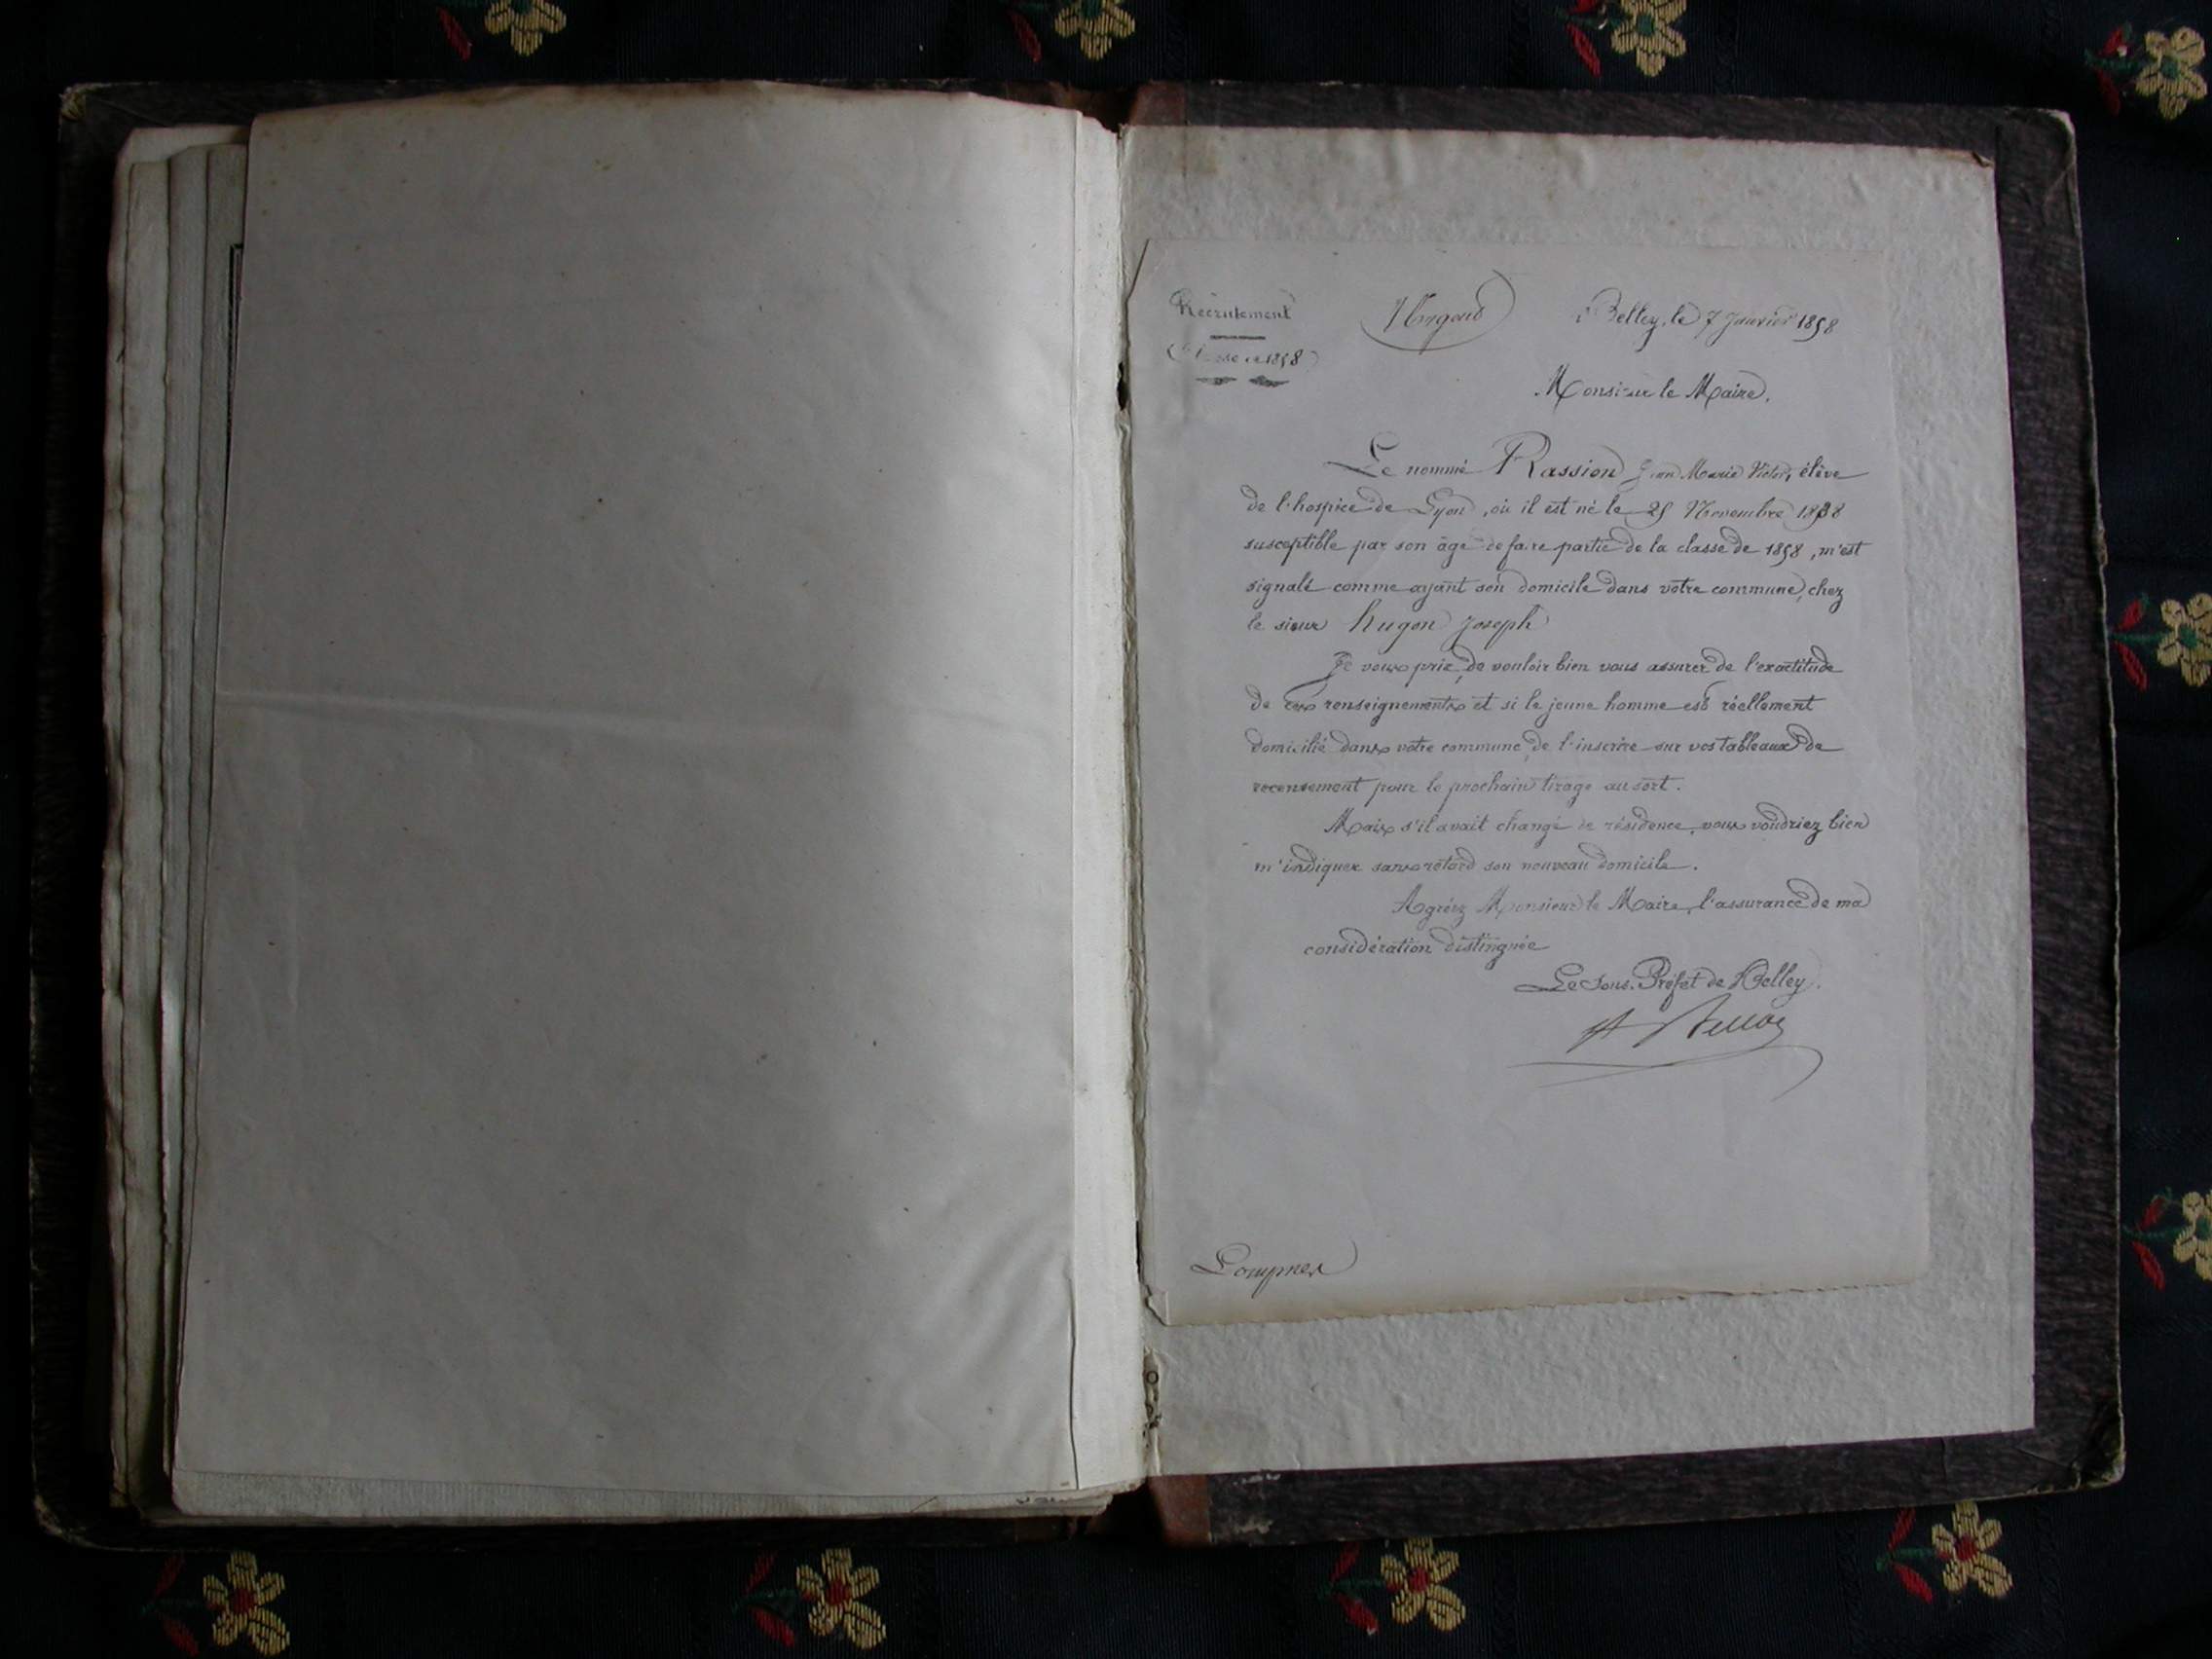 Recrutement
Urgent
Belley, le 7 Janvier 1858
Classe de 1858
Monsieur le Maire,
Le nommé Rassion Jean Marie Victor, élève
de l'hospice de Lyon, où il est né le 25 Novembre 1838
susceptible par son âge de faire partie de la classe de 1858, m'est
signalé comme ayant son domicile dans votre commune, chez
le sieur hugon Joseph
Je vous prie, de vouloir bien vous assurer de l'exactitude
de ces renseignements et si le jeune homme est réellement
domicilié dans votre commune, de l'inscrire sur vos tableaux de
recensement pour le prochain tirage au sort.
Mais s'il avait changé de résidence, vous voudriez bien
m'indiquer sans retard son nouveau domicile.
Agréez Monsieur le Maire, l'assurance de ma
considération distinguée
Le Sous-Préfet de Belley.
Lompnes